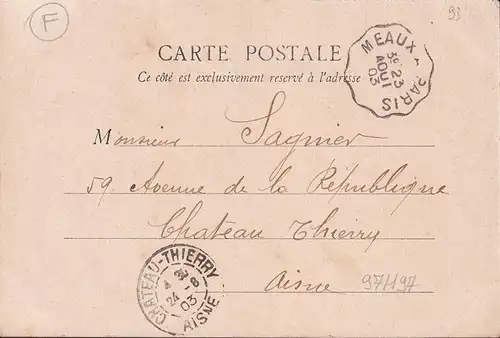 F
93
CARTE POSTALE
Ce côté est exclusivement reservé à l'adresse
MEAUX - PARIS
3e 23
AOUT
03
Monsieur Sagnier
59 Avenue de la République
Chateau Thierry
Aisne 97/197
CHATEAU-THIERRY
24 -8
03
AISNE